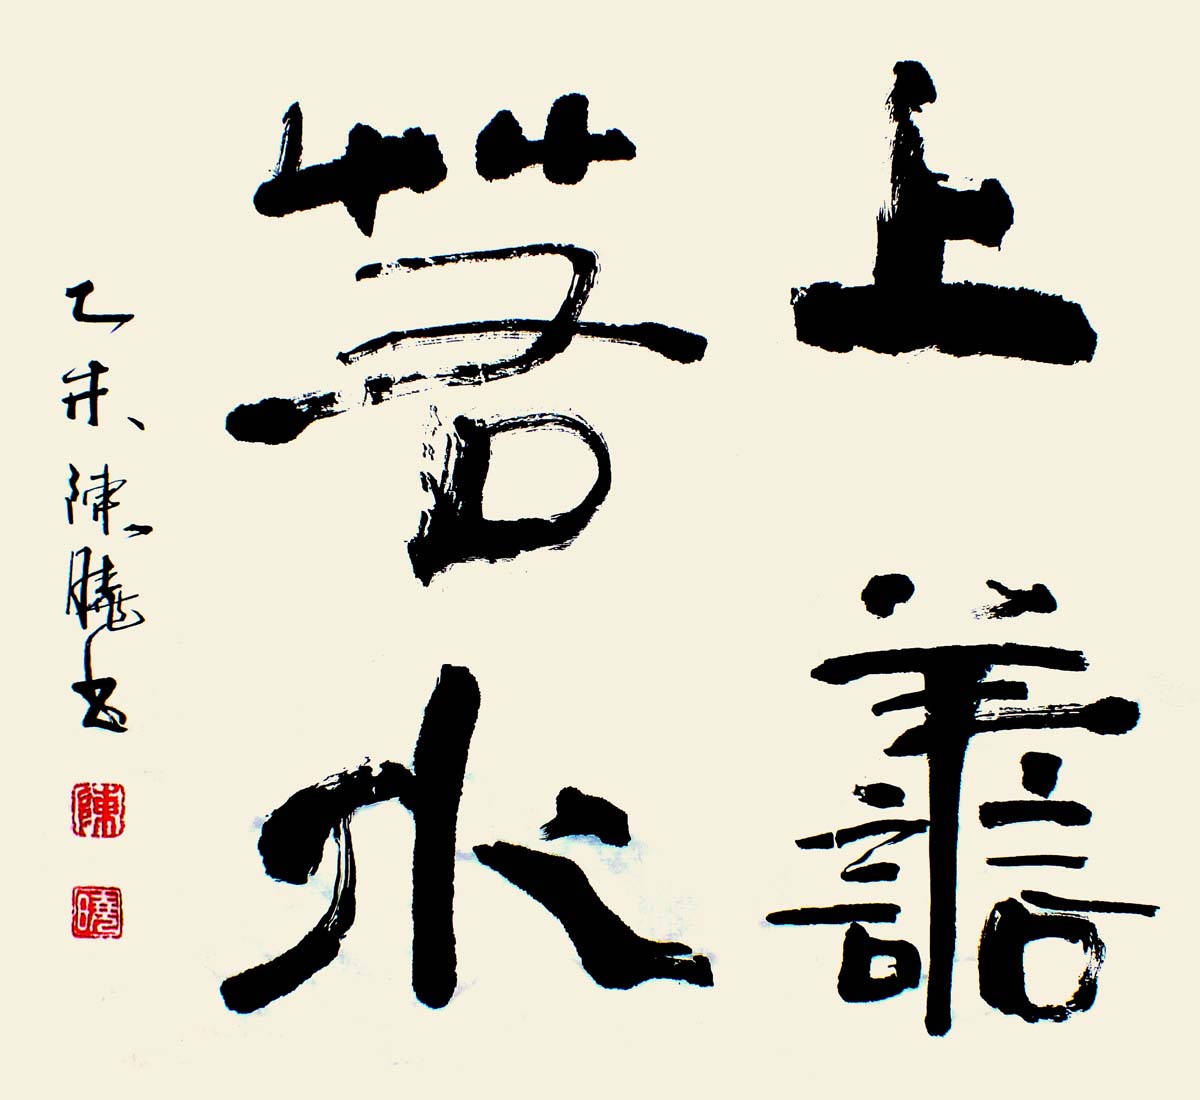 上譱
若水
乙未陳曉書
陳
曉